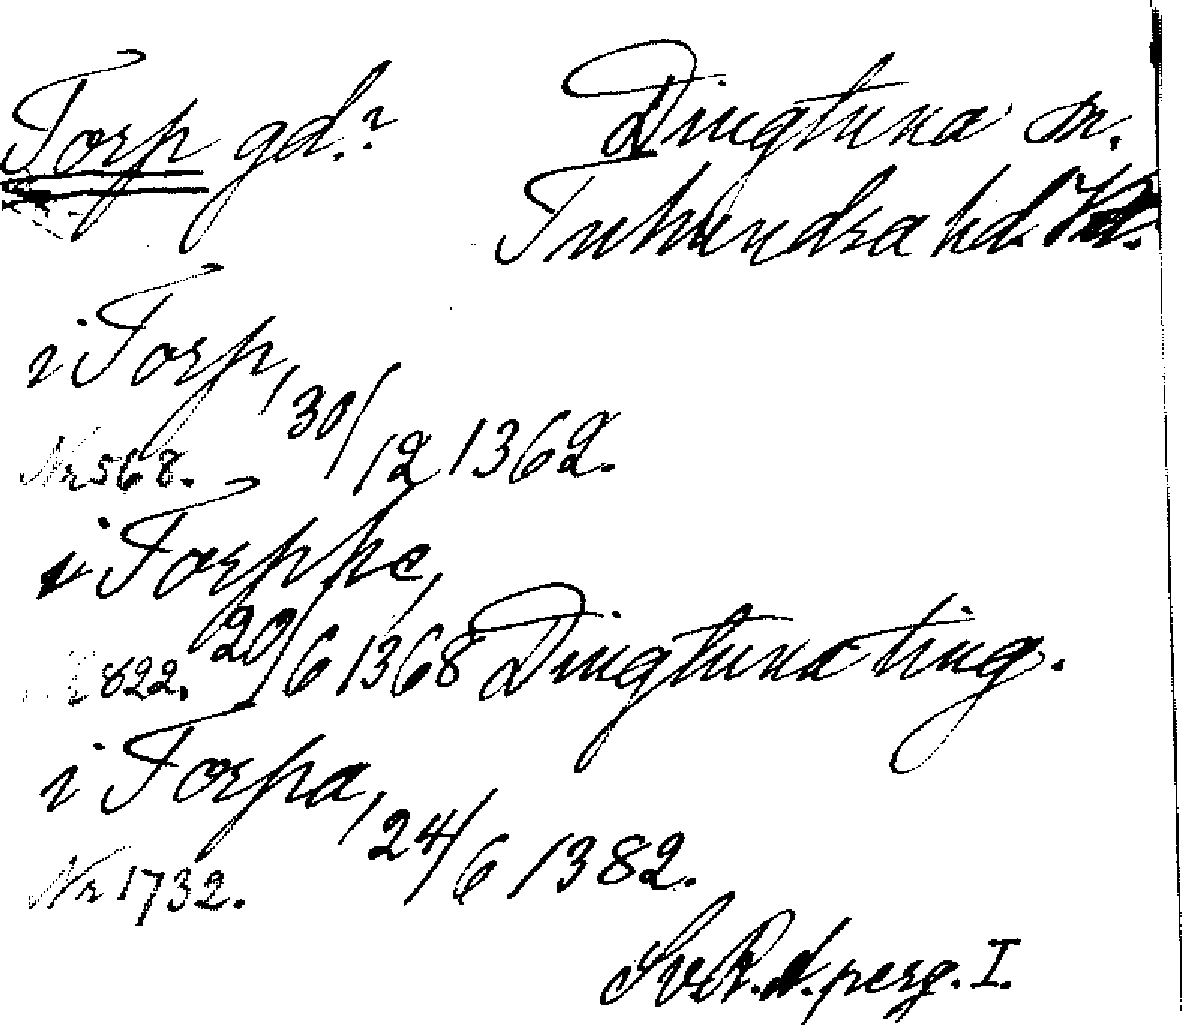 Torp gd.? Dingtuna sn.
Tuhundra hd. Vsl.
i Torp, 30/12 1362.
Nr 568.
i Torppe, 20/6 1368 Dingtuna ting.
Nr 822.
i Torpa, 24/6 1382.
Nr 1732.
Sv. R. A. perg. I.